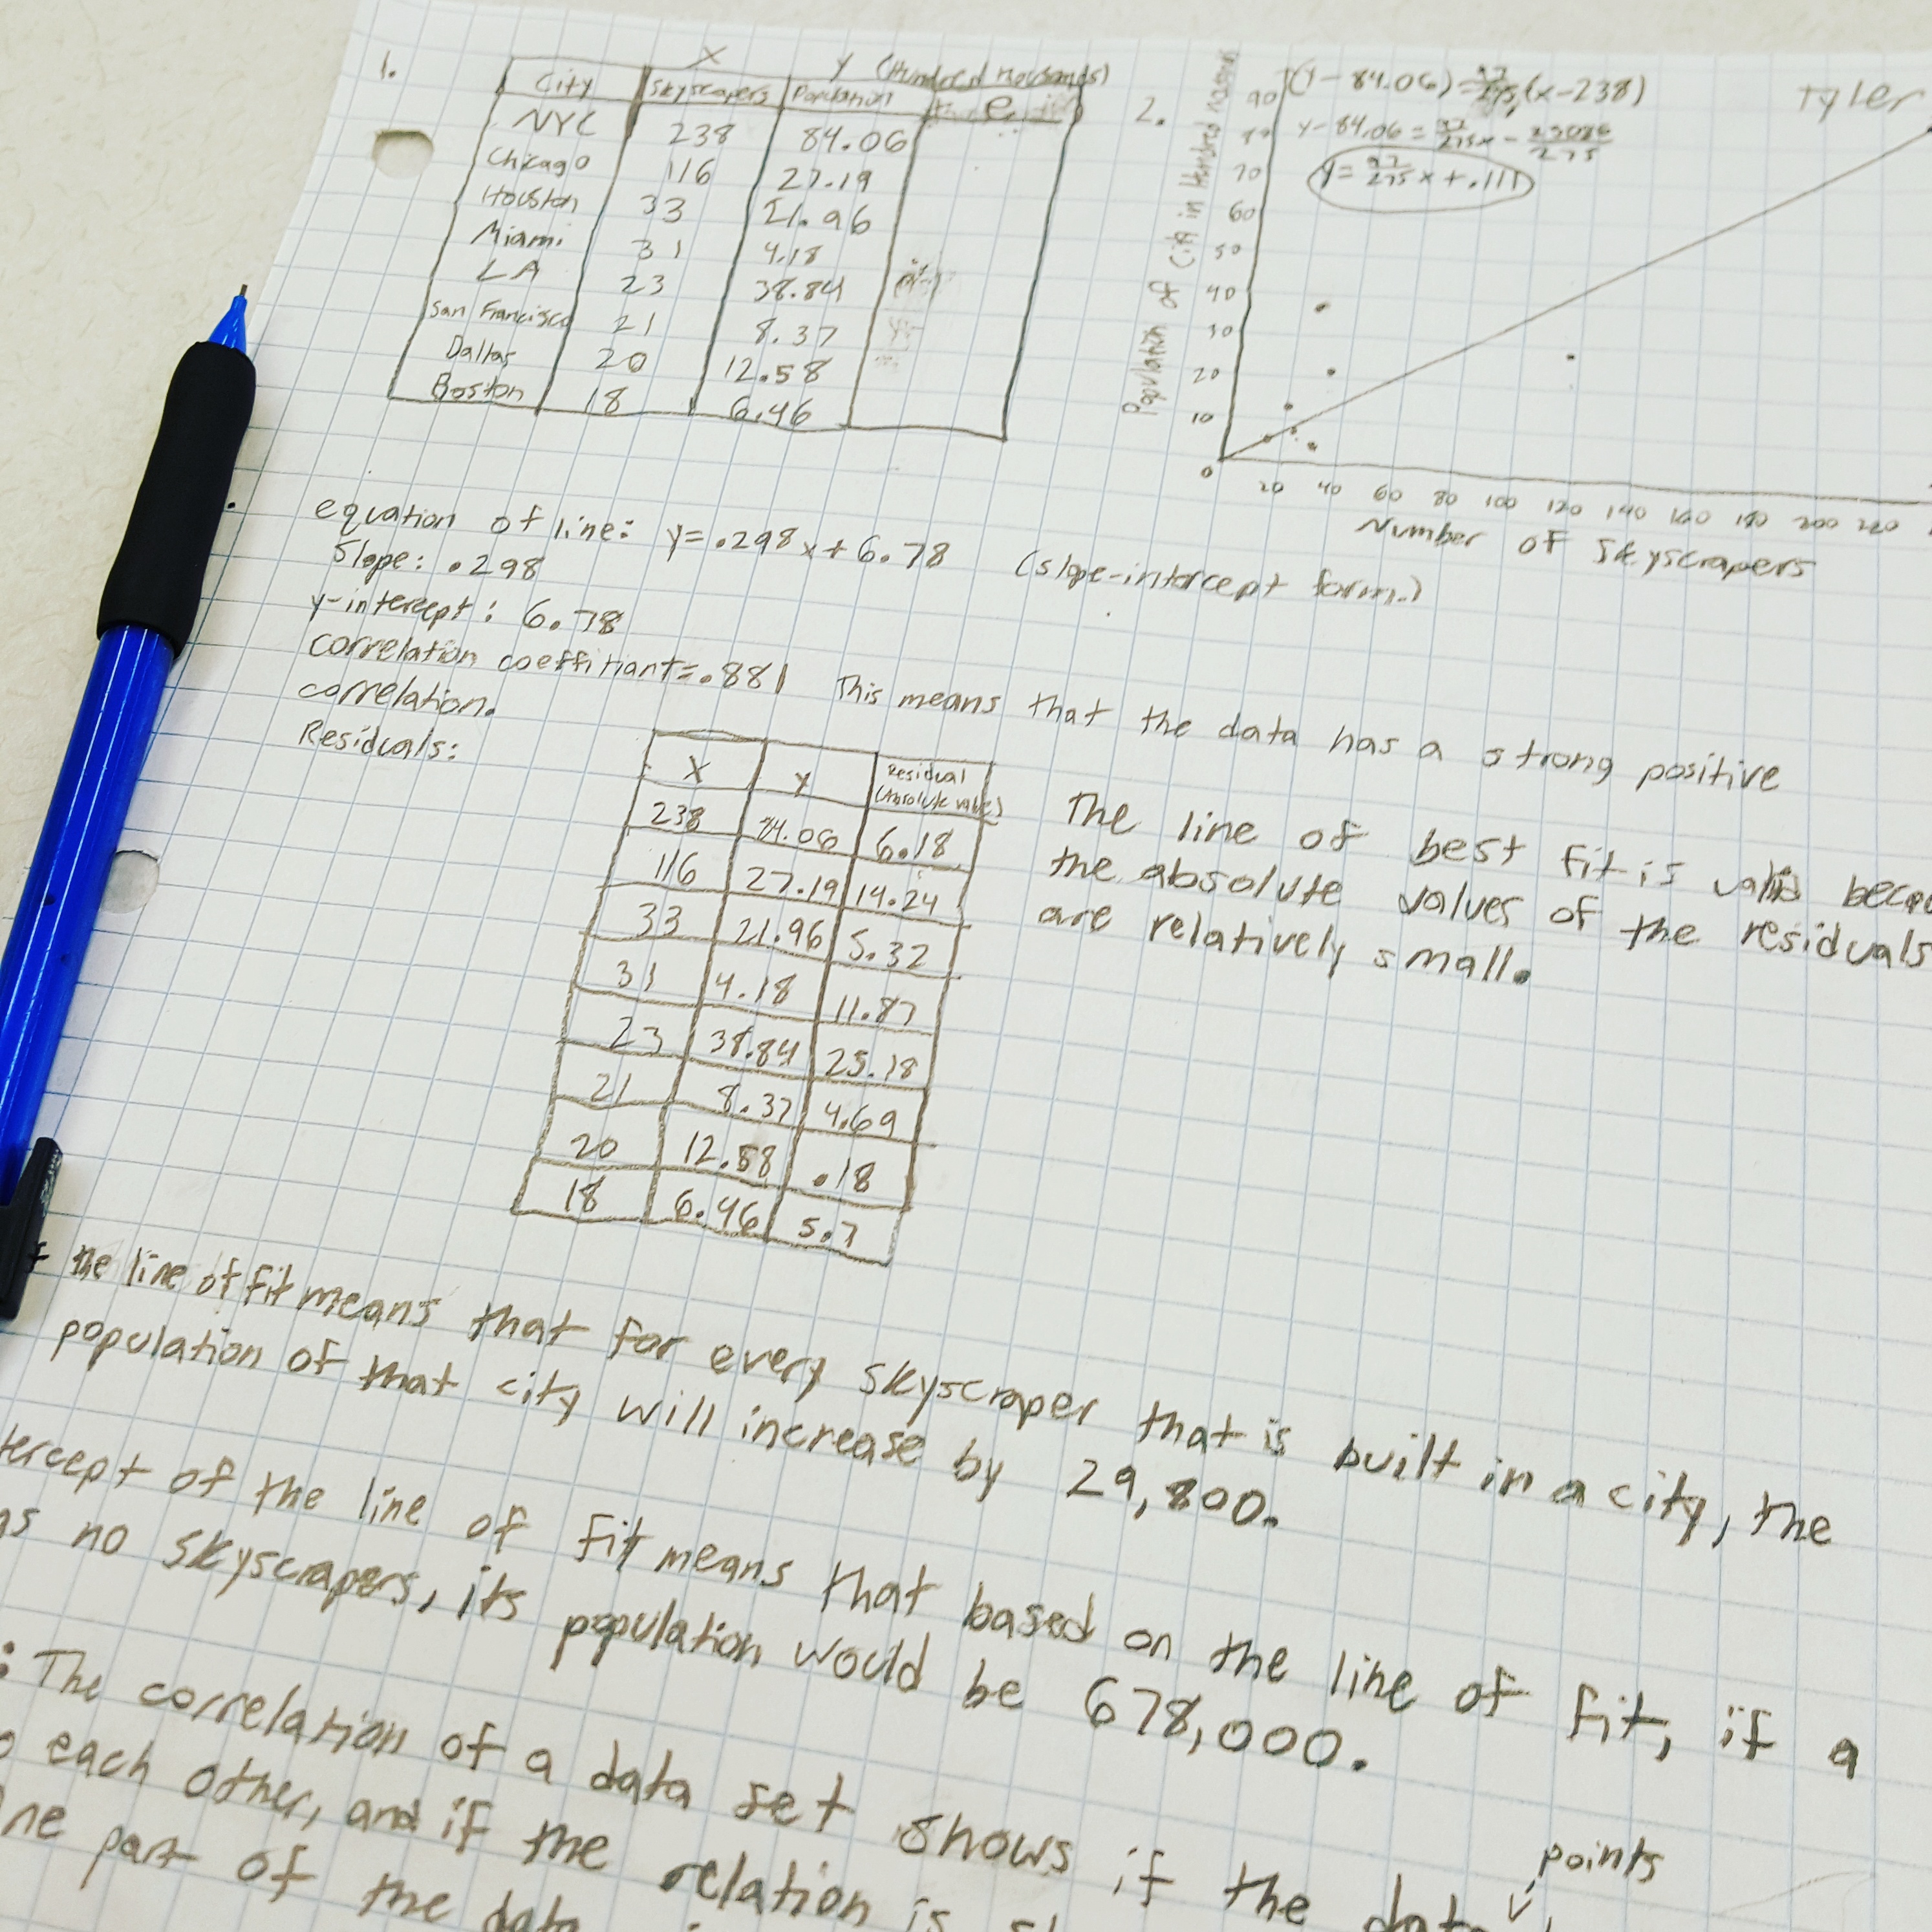 1.
X y (Hundred Thousands)
City Skyscrapers Population
NYC 238 84.06
Chicago 116 27.19
Houston 33 21.96
Miami 31 4.18
LA 23 38.84
San Francisco 21 8.37
Dallas 20 12.58
Boston 18 6.46
2.
Tyler
(y-84.06)= (x-238)
y-84.06= x-
y= x+.111
Population of City in Hundred
90
80
70
60
50
40
30
20
10
0
20 40 60 80 100 120 140 160 180 200 220
Number of Skyscrapers
equation of line: y=.298x+6.78 (slope-intercept form.)
Slope: .298
y-intercept: 6.78
correlation coeffitiant=.881 This means that the data has a strong positive
correlation.
Residuals:
X y Residual (Absolute value)
238 84.06 6.18
116 27.19 14.24
33 21.96 5.32
31 4.18 11.87
23 38.84 25.18
21 8.37 4.69
20 12.58 .18
18 6.46 5.7
The line of best fit is valid
the absolute values of the residuals
are relatively small.
the line of fit means that for every skyscraper that is built in a city, the
population of that city will increase by 29,800.
tercept of the line of fit means that based on the line of fit, if a
as no skyscrapers, its population would be 678,000.
: The correlation of a data set shows if the data points
o each other, and if the relation is
part of the data